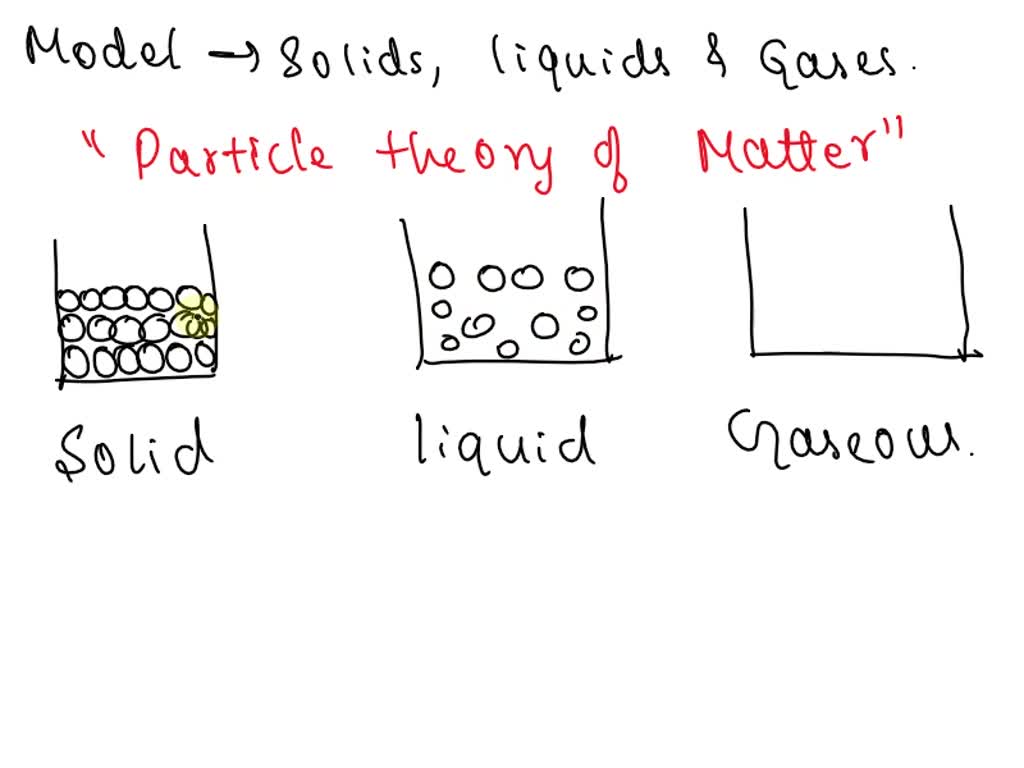 Model → Solids, liquids & Gases.
"Particle theory of Matter"
Solid liquid Gaseous.